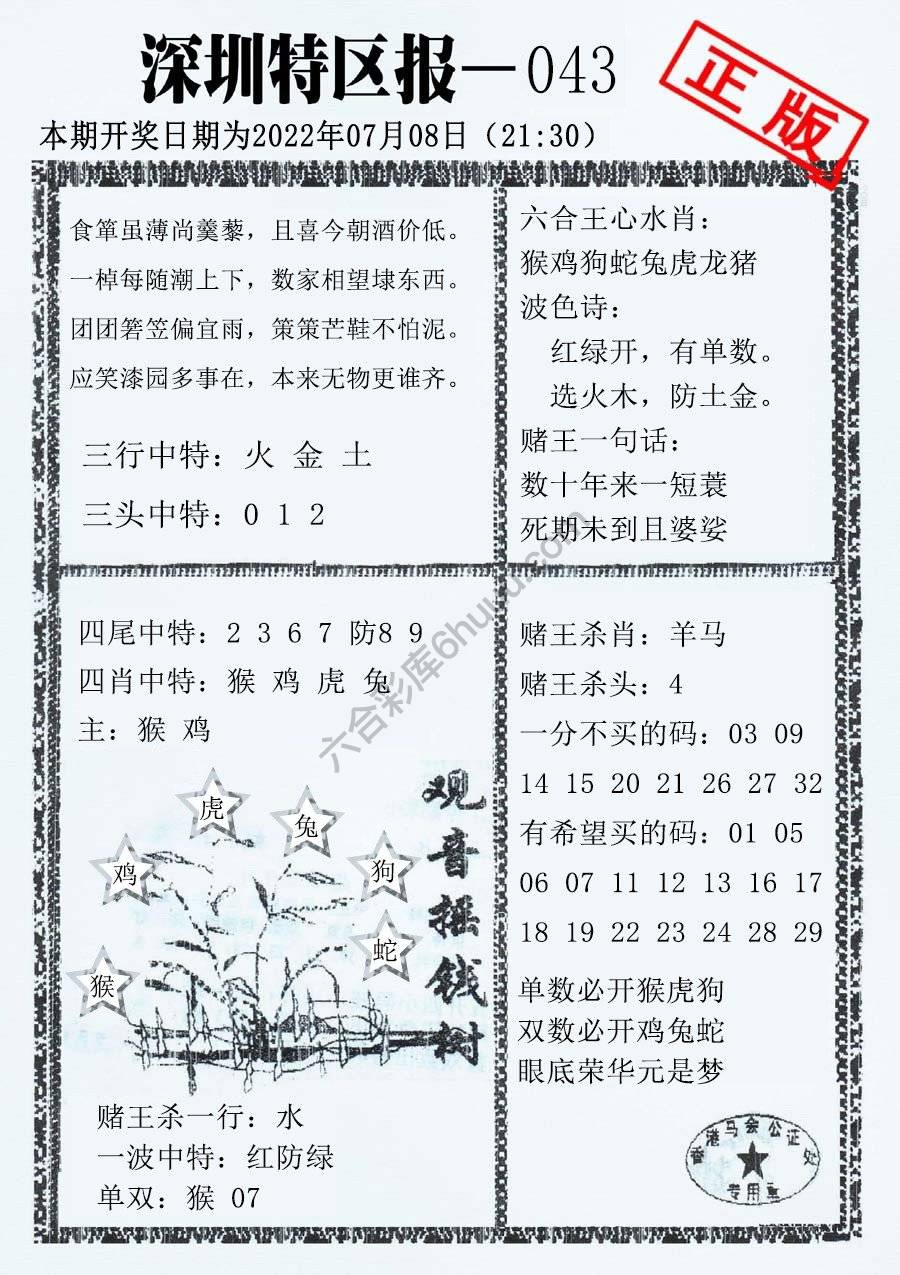 深圳特区报—043
正版
本期开奖日期为2022年07月08日（21:30）
食箪虽薄尚羹藜，且喜今朝酒价低。
一棹每随潮上下，数家相望埭东西。
团团箬笠偏宜雨，策策芒鞋不怕泥。
应笑漆园多事在，本来无物更谁齐。
三行中特：火 金 土
三头中特：0 1 2
六合王心水肖：
猴鸡狗蛇兔虎龙猪
波色诗：
红绿开，有单数。
选火木，防土金。
赌王一句话：
数十年来一短蓑
死期未到且婆娑
四尾中特：2 3 6 7 防8 9
四肖中特：猴 鸡 虎 兔
主：猴 鸡
虎
兔
鸡
狗
蛇
猴
观音摇钱树
赌王杀一行：水
一波中特：红防绿
单双：猴 07
赌王杀肖：羊马
赌王杀头：4
一分不买的码：03 09
14 15 20 21 26 27 32
有希望买的码：01 05
06 07 11 12 13 16 17
18 19 22 23 24 28 29
单数必开猴虎狗
双数必开鸡兔蛇
眼底荣华元是梦
香港马会公证处
专用章
六合彩库6huu.com